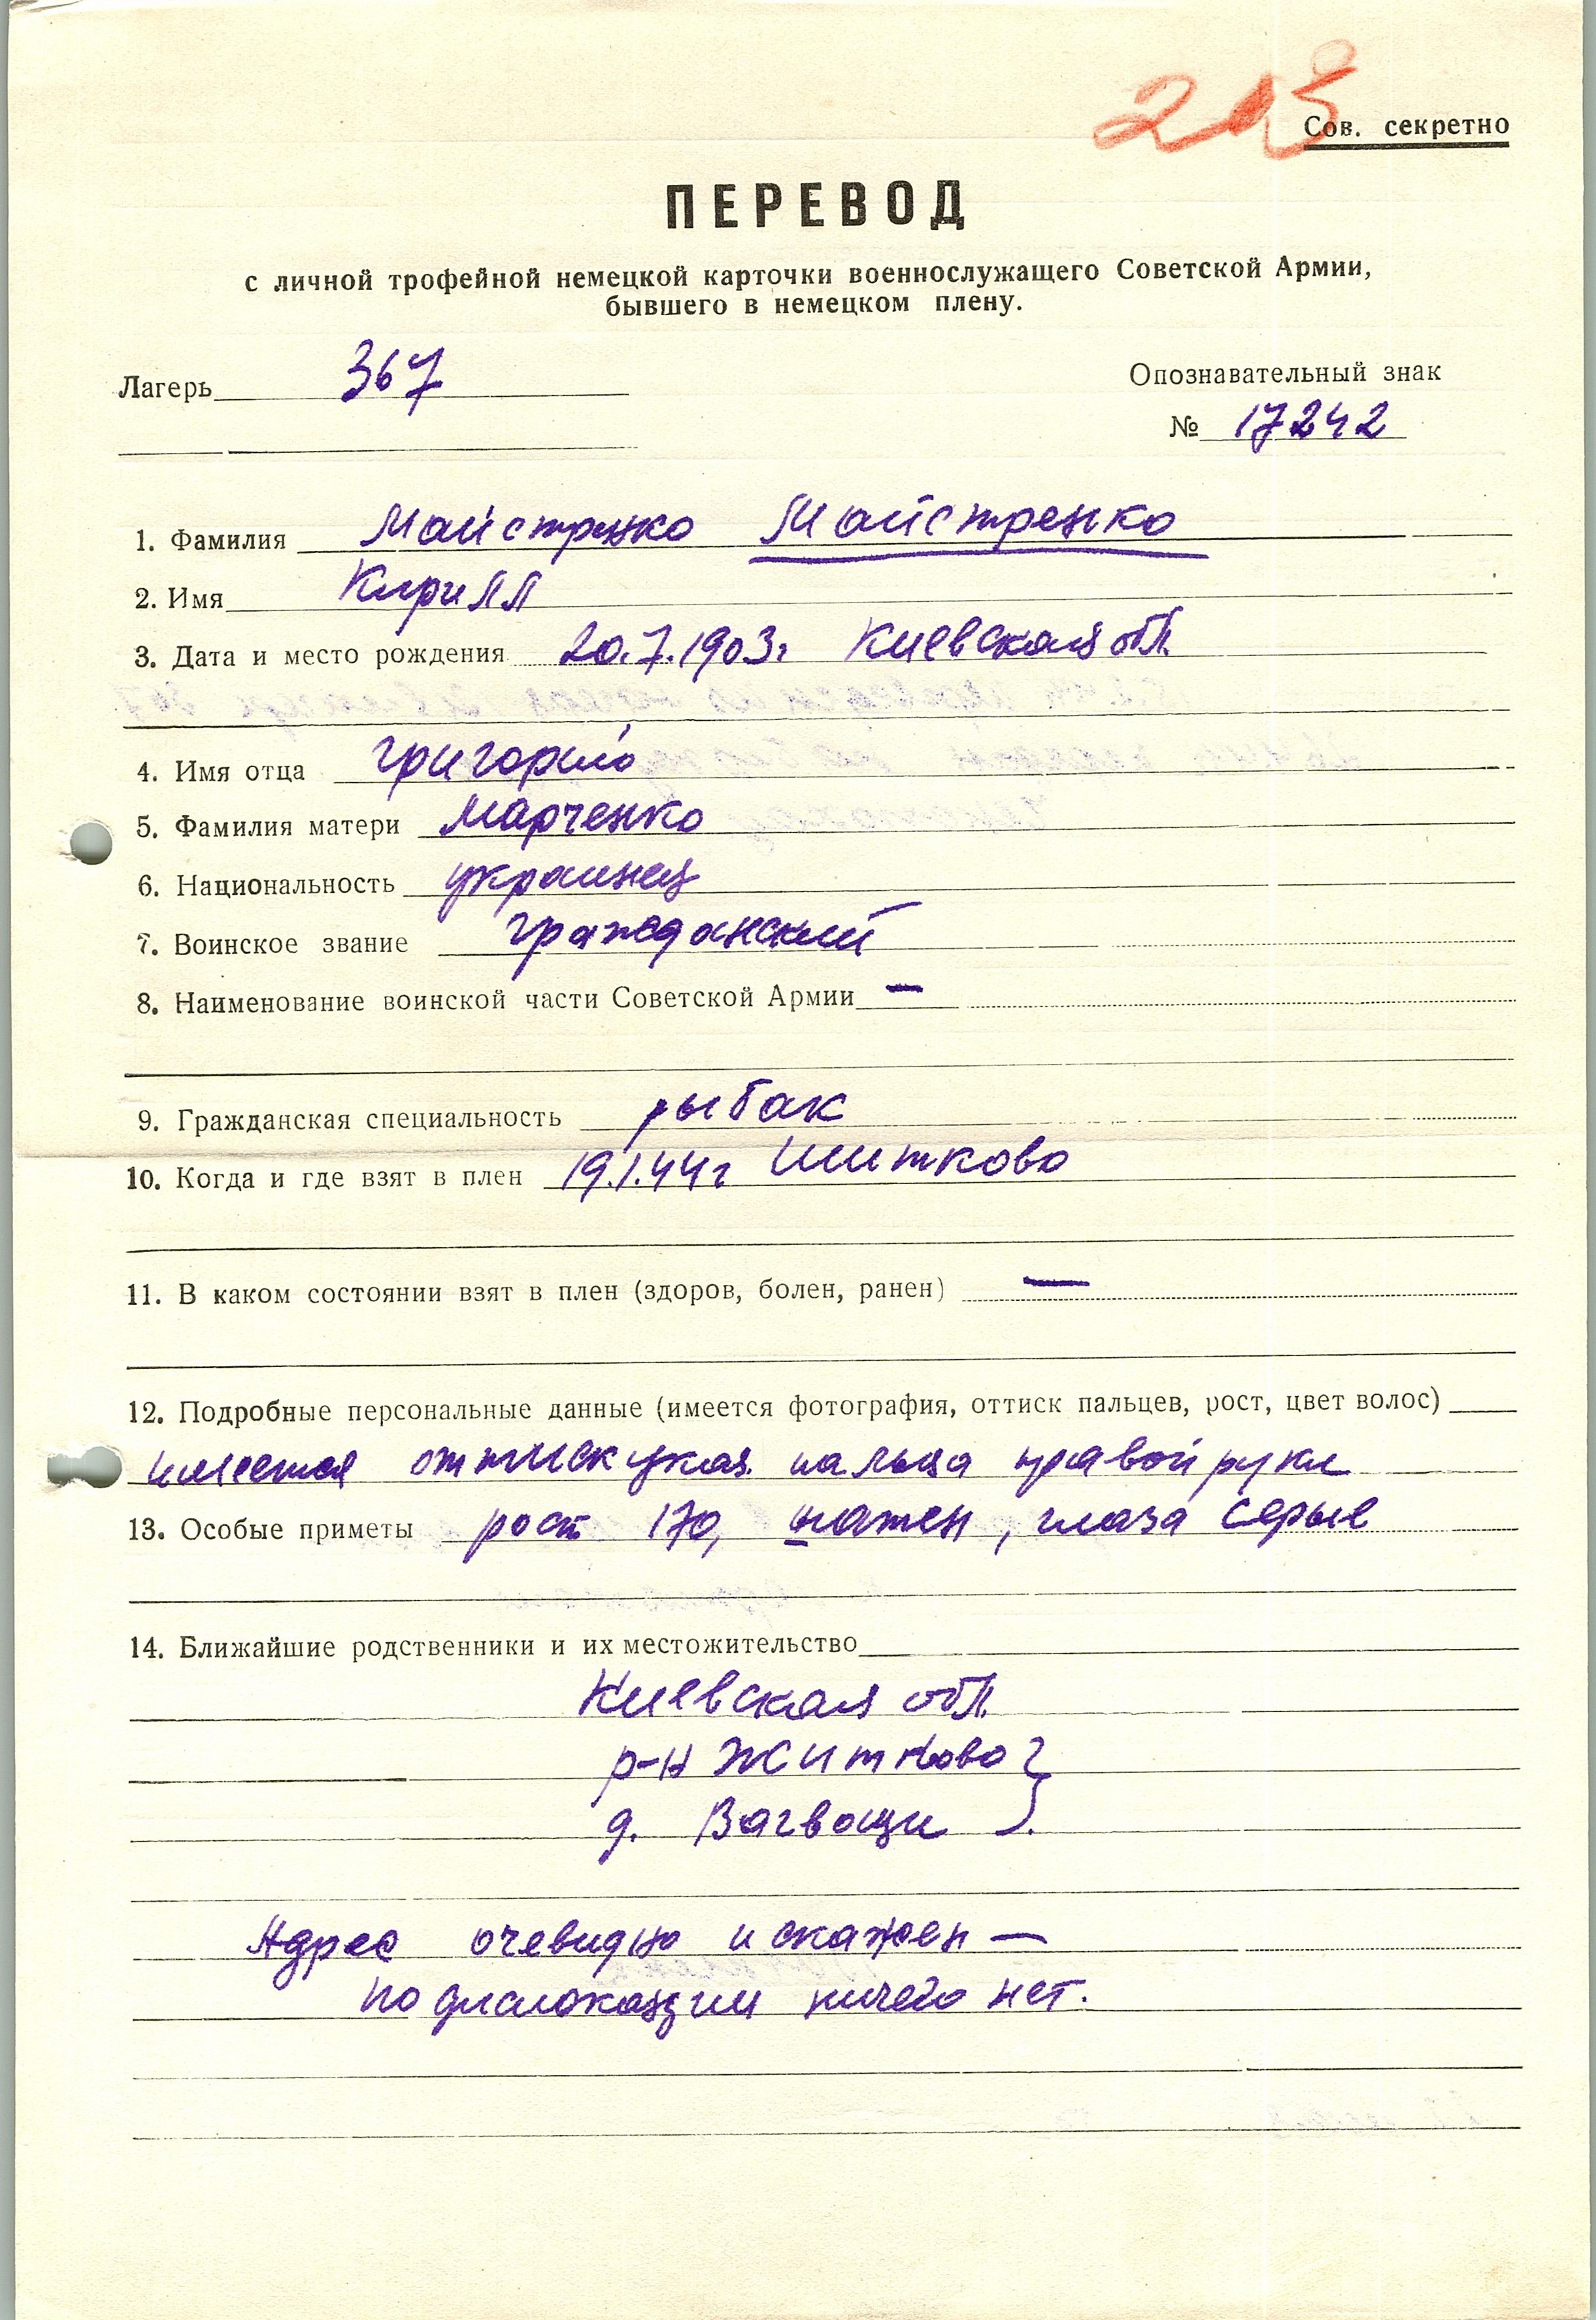 Сов. секретно
ПЕРЕВОД
с личной трофейной немецкой карточки военнослужащего Советской Армии,
бывшего в немецком плену.
Лагерь 367
Опознавательный знак
№ 17242
1. Фамилия Майстренко Майстренко
2. Имя Кирилл
3. Дата и место рождения 20.7.1903г Киевская обл.
4. Имя отца Григорий
5. Фамилия матери Марченко
6. Национальность украинец
7. Воинское звание гражданский
8. Наименование воинской части Советской Армии —
9. Гражданская специальность рыбак
10. Когда и где взят в плен 19.1.44г Шитково
11. В каком состоянии взят в плен (здоров, болен, ранен) —
12. Подробные персональные данные (имеется фотография, оттиск пальцев, рост, цвет волос)
имеется оттиск указ. пальца правой руки
13. Особые приметы рост 170, глаза серые
14. Ближайшие родственники и их местожительство
Киевская обл.
р-н Житково
д. Вагвощи
Адрес очевидно искажен —
по дислокации ничего нет.